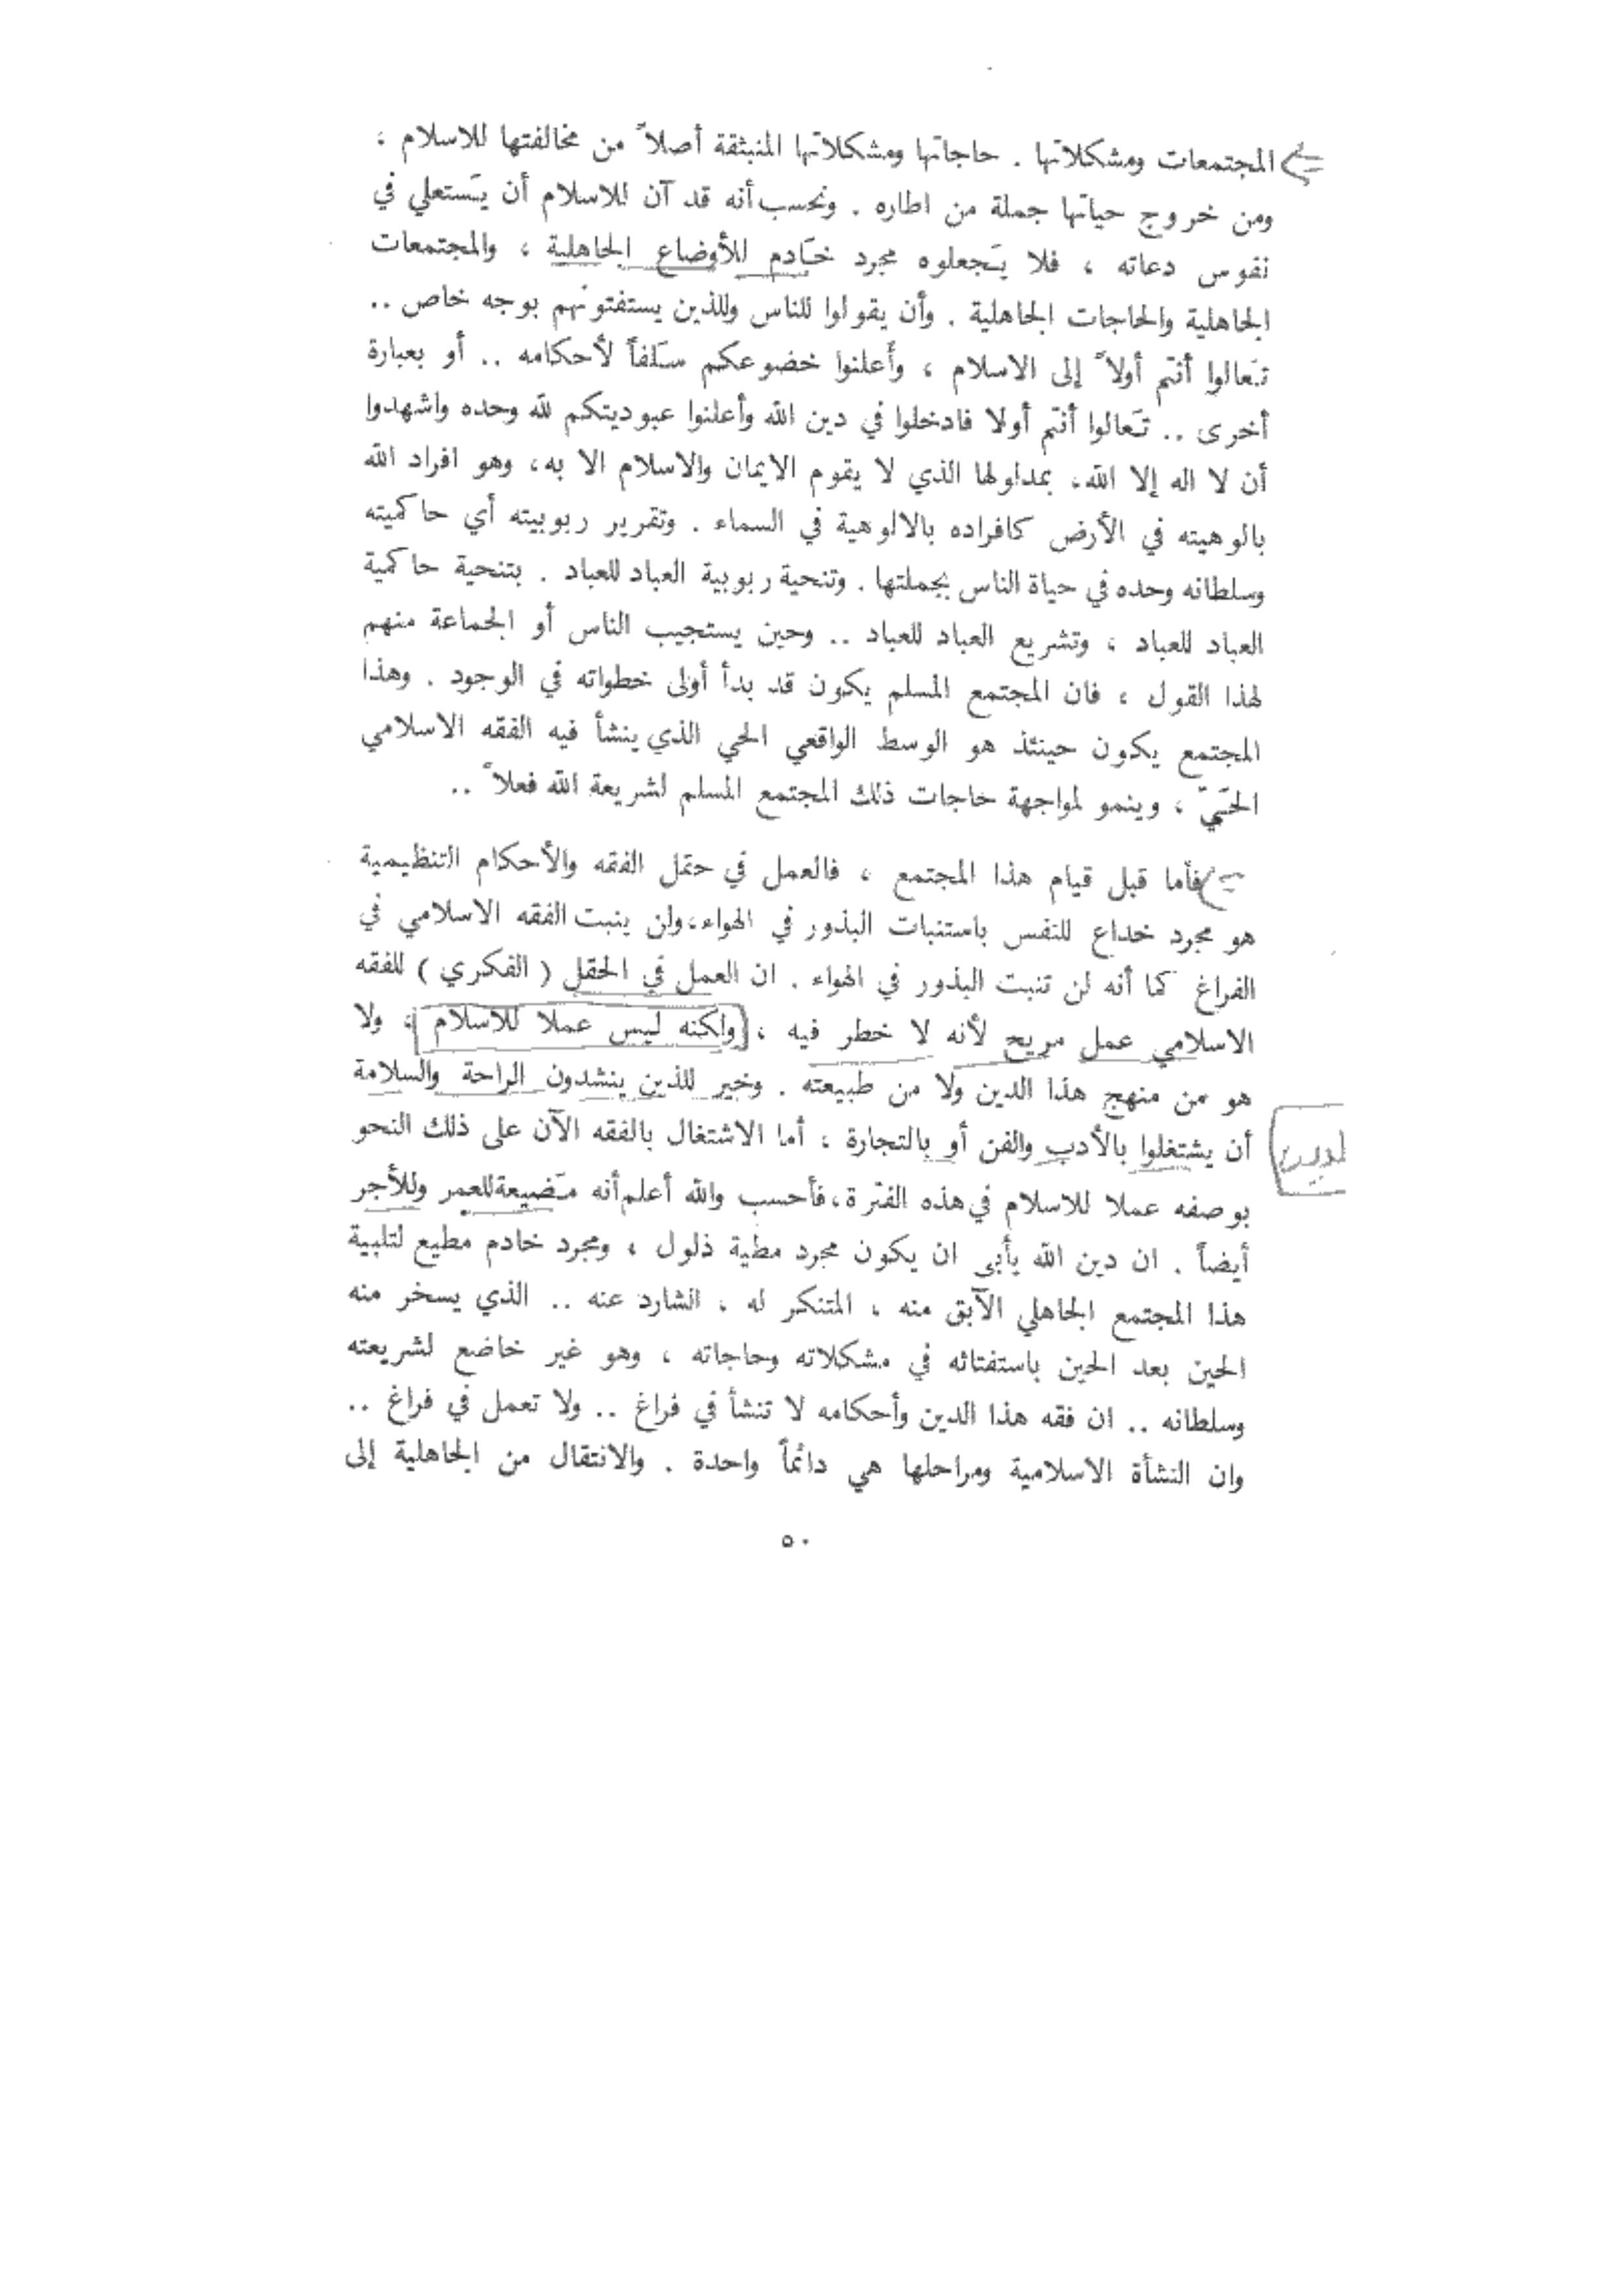 المجتمعات ومشكلاتها . حاجاتها ومشكلاتها المنبثقة أصلاً من مخالفتها للاسلام ،
ومن خروج حياتها جملة من اطاره . ونحسب أنه قد آن للاسلام أن يَستعلي في
نفوس دعاته ، فلا يَجعلوه مجرد خَادم للأوضاع الجاهلية ، والمجتمعات
الجاهلية والحاجات الجاهلية . وأن يقولوا للناس وللذين يستفتونهم بوجه خاص ..
تَعالوا أنتم أولاً إلى الاسلام ، وأَعلنوا خضوعكم سَلفاً لأحكامه .. أو بعبارة
أخرى .. تَعالوا أنتم أولا فادخلوا في دين الله وأعلنوا عبوديتكم لله وحده واشهدوا
أن لا اله إلا الله، بمدلولها الذي لا يقوم الايمان والاسلام الا به، وهو افراد الله
بالوهيته في الأرض كافراده بالالوهية في السماء . وتقرير ربوبيته أي حاكميته
وسلطانه وحده في حياة الناس بجملتها . وتنحية ربوبية العباد للعباد . بتنحية حاكمية
العباد للعباد ، وتشريع العباد للعباد .. وحين يستجيب الناس أو الجماعة منهم
لهذا القول ، فان المجتمع المسلم يكون قد بدأ أولى خطواته في الوجود . وهذا
المجتمع يكون حينئذ هو الوسط الواقعي الحي الذي ينشأ فيه الفقه الاسلامي
الحَيّ ، وينمو لمواجهة حاجات ذلك المجتمع المسلم لشريعة الله فعلاً ..
فأما قبل قيام هذا المجتمع ، فالعمل في حقل الفقه والأحكام التنظيمية
هو مجرد خداع للنفس باستنبات البذور في الهواء، ولن ينبت الفقه الاسلامي في
الفراغ كما أنه لن تنبت البذور في الهواء . ان العمل في الحقل ( الفكري ) للفقه
الاسلامي عمل مريح لأنه لا خطر فيه ، ولكنه ليس عملا للاسلام ، ولا
هو من منهج هذا الدين ولا من طبيعته . وخير للذين ينشدون الراحة والسلامة
أن يشتغلوا بالأدب والفن أو بالتجارة ، أما الاشتغال بالفقه الآن على ذلك النحو
بوصفه عملا للاسلام في هذه الفترة، فأحسب والله أعلم أنه مَضيعة للعمر وللأجر
أيضاً . ان دين الله يأبى ان يكون مجرد مطية ذلول ، ومجرد خادم مطيع لتلبية
هذا المجتمع الجاهلي الآبق منه ، المتنكر له ، الشارد عنه .. الذي يسخر منه
الحين بعد الحين باستفتائه في مشكلاته وحاجاته ، وهو غير خاضع لشريعته
وسلطانه .. ان فقه هذا الدين وأحكامه لا تنشأ في فراغ .. ولا تعمل في فراغ ..
وان النشأة الاسلامية ومراحلها هي دائماً واحدة . والانتقال من الجاهلية إلى
٥٠